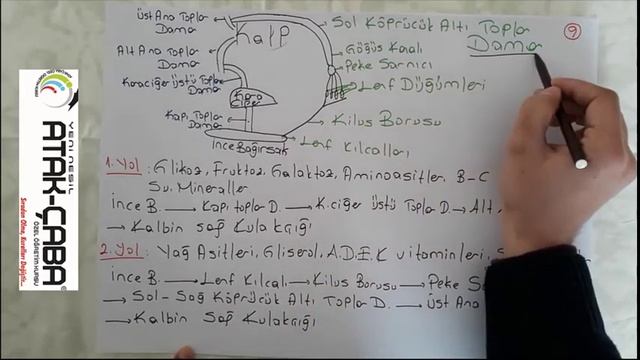 Üst Ana Toplar Damar
Alt Ana Toplar Damar
Karaciğer Üstü Toplar Damar
Kapı Toplar Damarı
Kalp
Kara Ciğer
İnce Bağırsak
Sol Köprücük Altı Toplar Damar
9
Göğüs Kanalı
Peke Sarnıcı
Lenf Düğümleri
Kilus Borusu
Lenf Kılcalları
1. Yol: Glikoz, Fruktoz, Galaktoz, Aminoasitler, B-C
Su, Mineraller
İnce B. → Kapı toplar D. → K.ciğer Üstü Toplar D. → Alt
→ Kalbin sağ Kulakçığı
2. Yol: Yağ Asitleri, Gliserol, A,D,E,K vitaminleri,
İnce B. → Lenf Kılcalı → Kilus Borusu → Peke
→ Sol-Sağ Köprücük Altı Toplar D. → Üst Ana
→ Kalbin Sağ Kulakçığı
YENİ NESİL
ATAK-ÇABA
ÖZEL ÖĞRETİM KURSU
Sıradan Olma, Kuralları Değiştir...